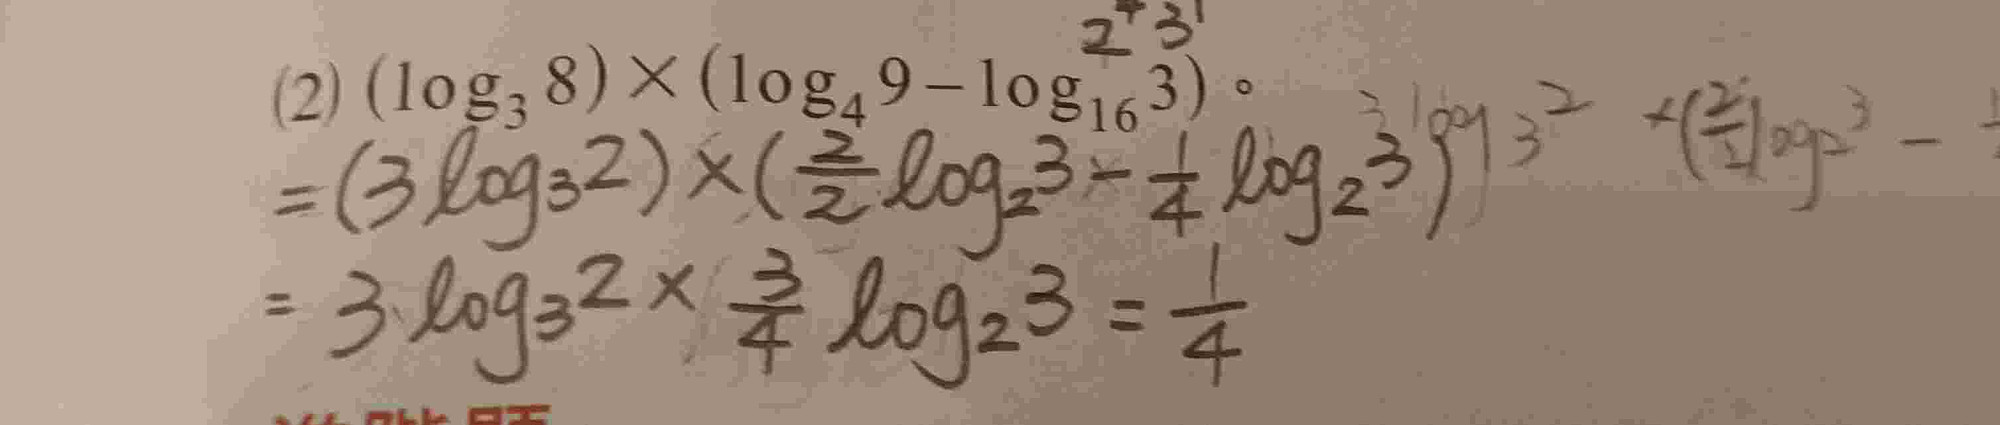 2⁴ 3¹
(2) (log₃ 8) × (log₄ 9 − log₁₆ 3)。
= (3 log₃ 2) × (2/2 log₂ 3 − 1/4 log₂ 3)
3 log 3² × (2/2 log₂ 3 −
= 3 log₃ 2 × 3/4 log₂ 3 = 1/4